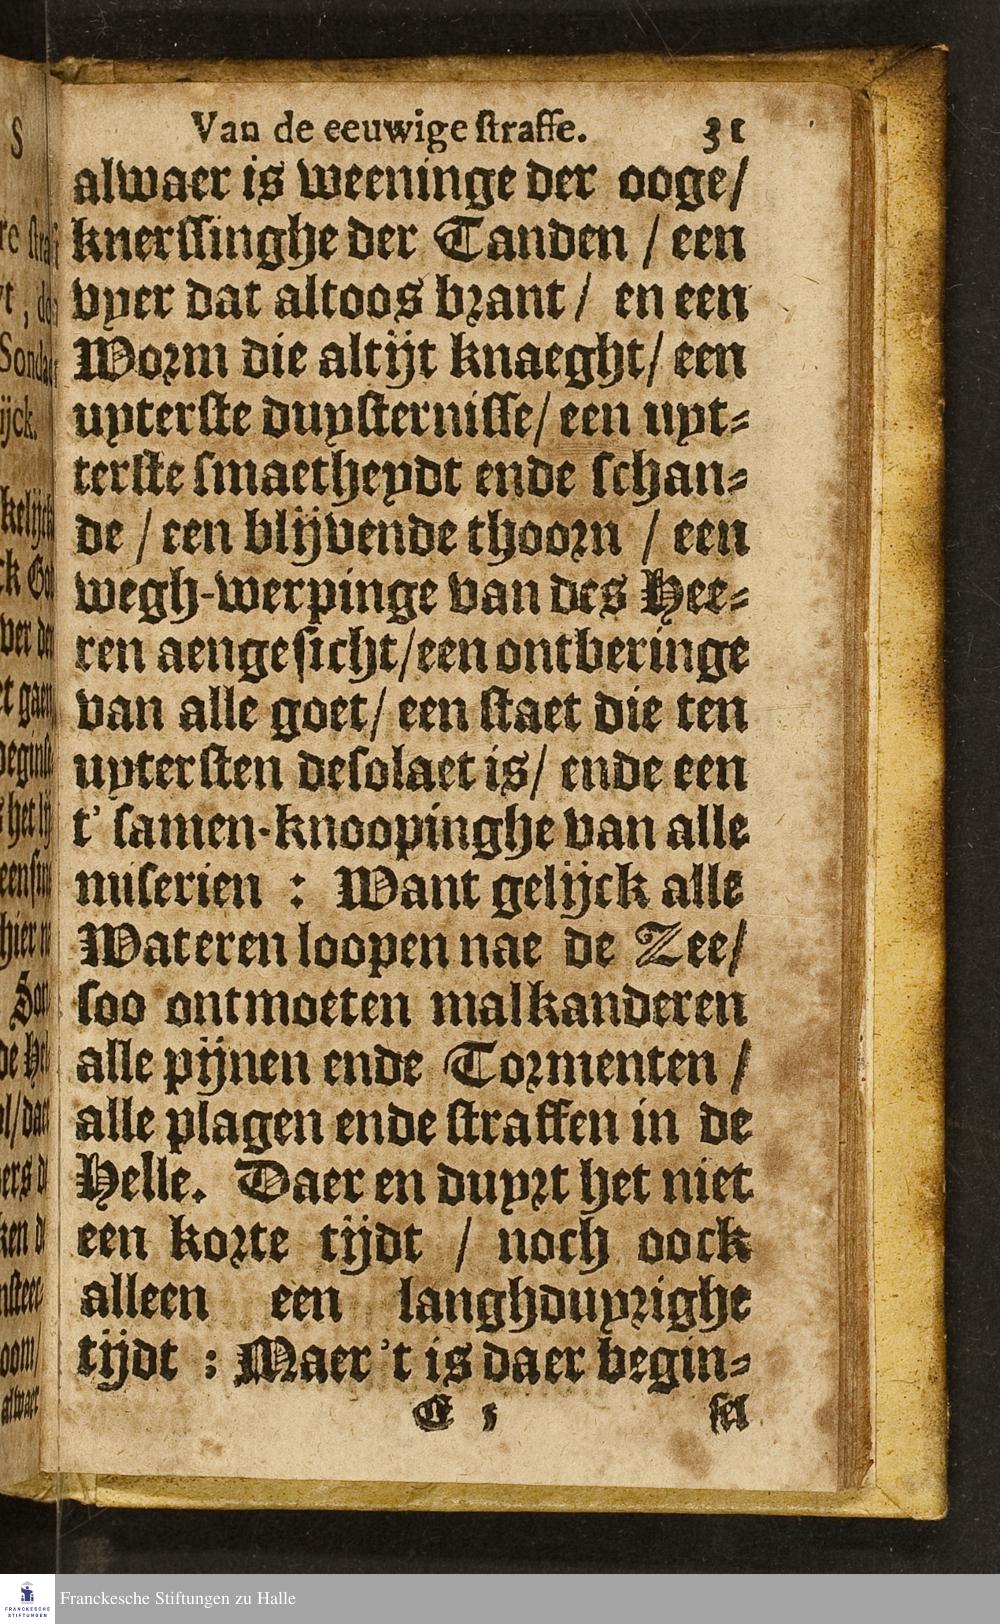 Van de eeuwige straffe. 31
alwaer is weeninge der ooge/
knerssinghe der Tanden / een
vyer dat altoos brant / en een
Worm die altijt knaeght/ een
uyterste duysternisse/ een uyt-
terste smaetheydt ende schan-
de / een blijvende thoorn / een
wegh-werpinge van des Hee-
ren aengesicht/een ontberinge
van alle goet/ een staet die ten
uytersten desolaet is/ ende een
t' samen-knoopinghe van alle
miserien : Want gelijck alle
Wateren loopen nae de Zee/
soo ontmoeten malkanderen
alle pijnen ende Tormenten /
alle plagen ende straffen in de
Helle. Daer en duyrt het niet
een korte tijdt / noch oock
alleen een langhduyrighe
tijdt : Maer 't is daer begin-
C 5 sel
Franckesche Stiftungen zu Halle
FRANCKESCHE
STIFTUNGEN